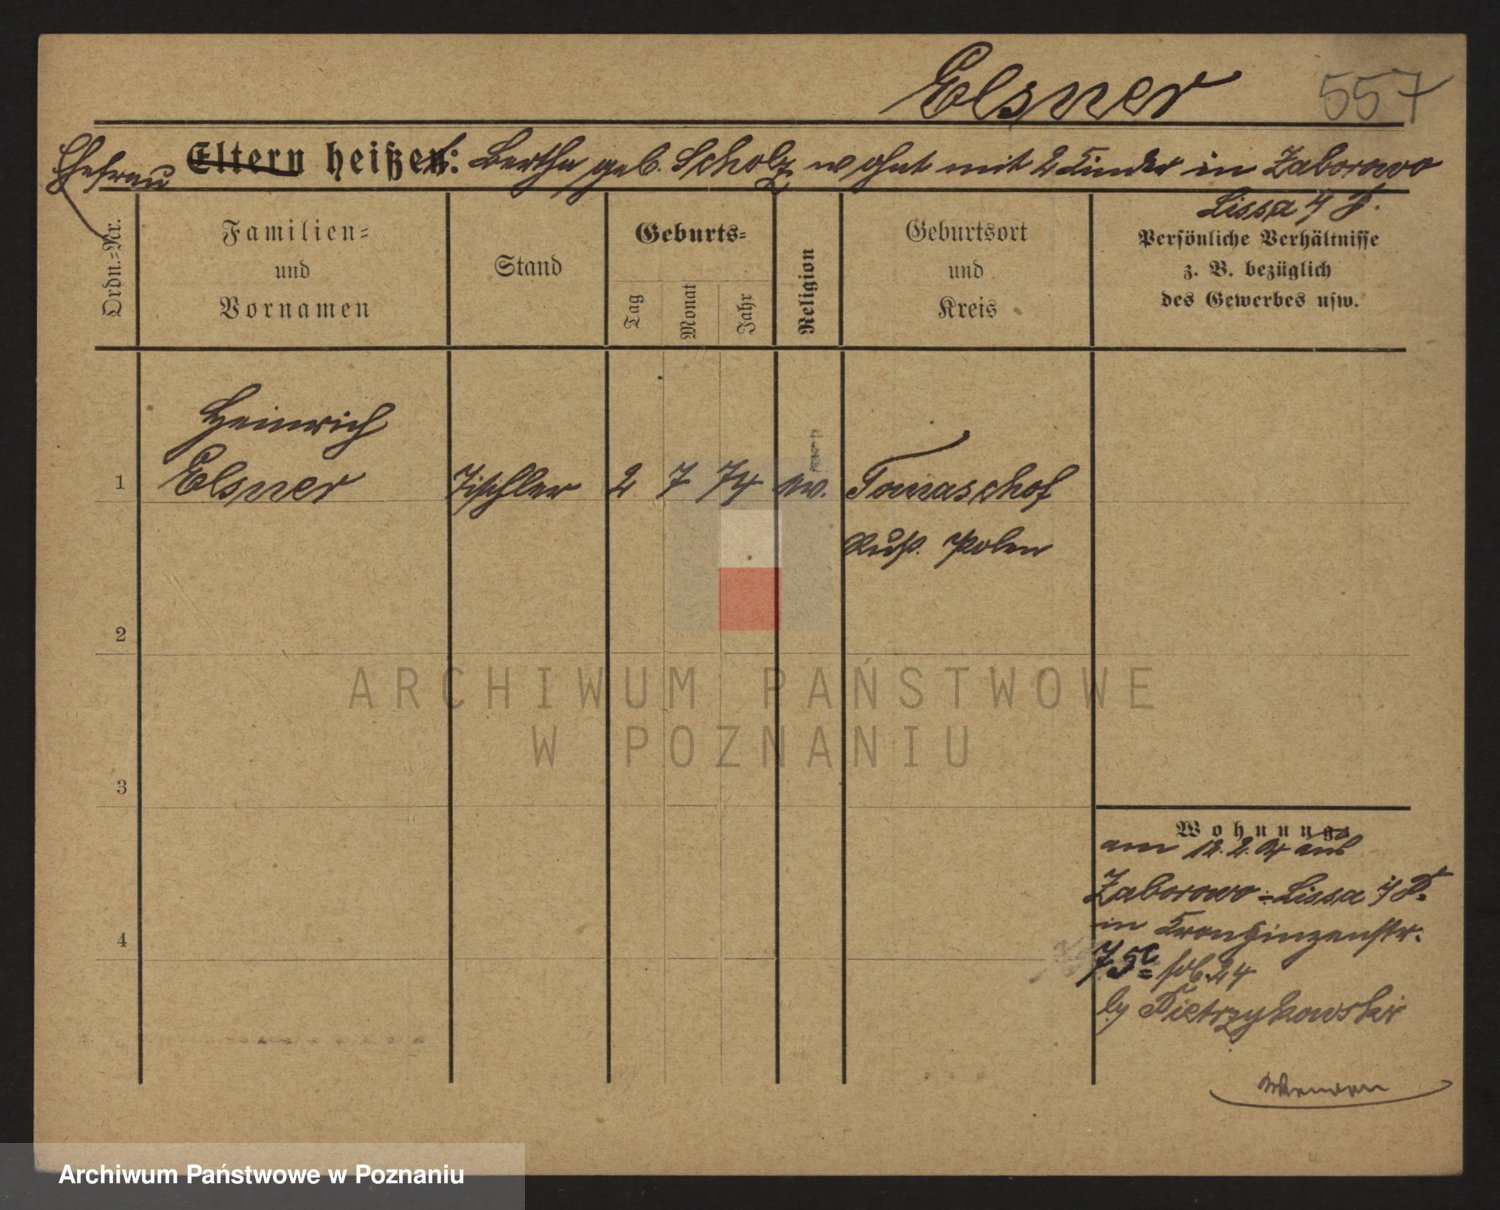 Elsner 557
Ehefrau Eltern heißen: Bertha geb. Scholz wohnt mit 2 Kinder in Zaborowo
Lissa i/P.
Ordn.-Nr.
Familien-
und
Vornamen
Stand
Geburts-
Tag
Monat
Jahr
Religion
Geburtsort
und
Kreis
Persönliche Verhältnisse
z. B. bezüglich
des Gewerbes usw.
Heinrich
1 Elsner Tischler 2 7 74 ev. Tomaschof
Russ. Polen
2
ARCHIWUM PAŃSTWOWE
W POZNANIU
3
Wohnung
am 12.2.04 aus
Zaborowo-Lissa i/P.
in Kronprinzenstr.
4
by Pietrzykowski
Archiwum Państwowe w Poznaniu